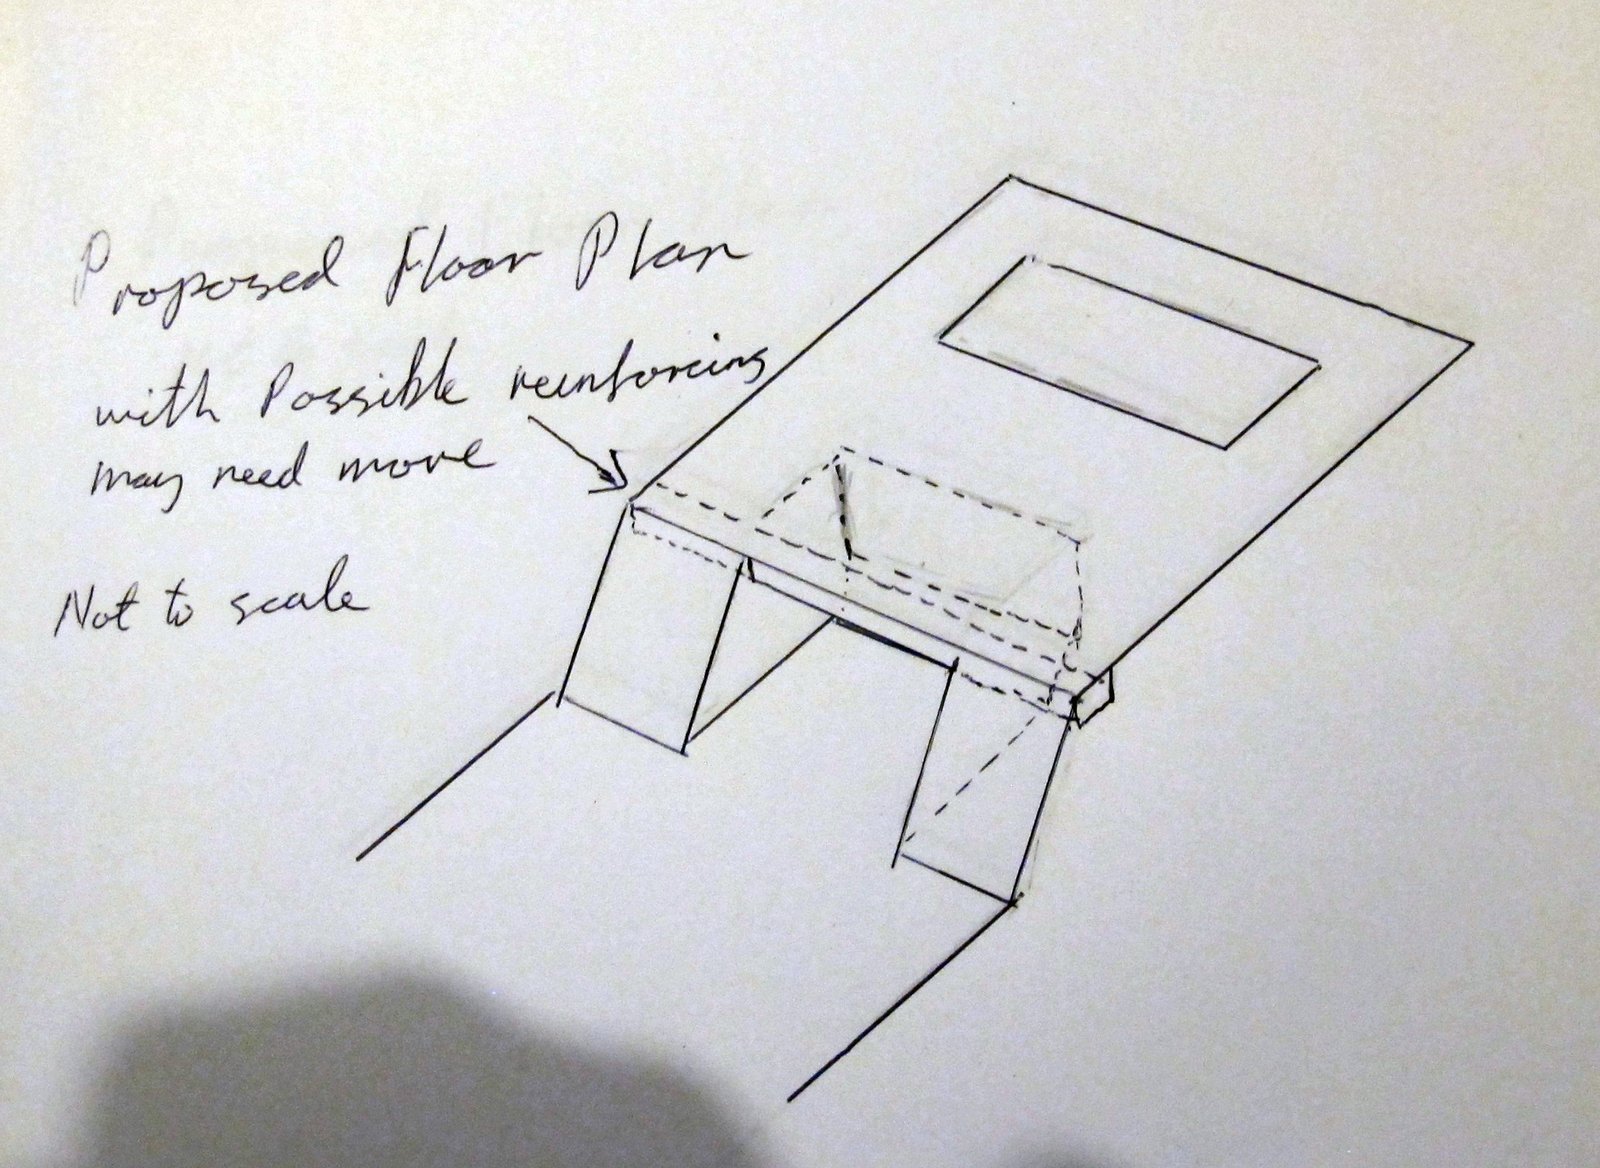 Proposed Floor Plan
with Possible reinforcing
may need more
Not to scale